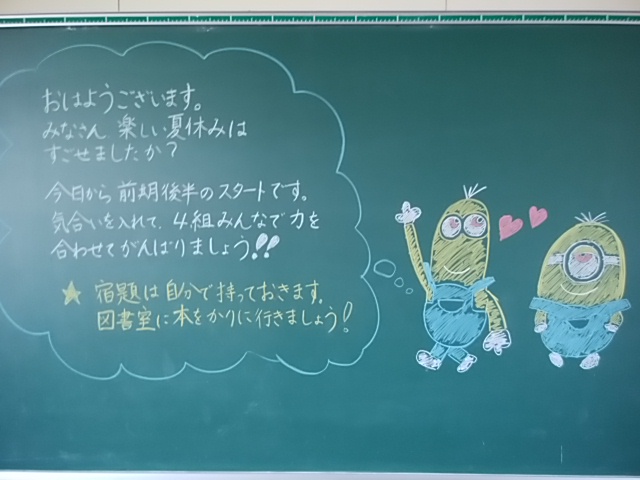 おはようございます。
みなさん 楽しい夏休みは
すごせましたか?
今日から 前期後半のスタートです。
気合いを入れて、4組みんなで力を
合わせてがんばりましょう!!
★ 宿題は自分で持っておきます。
図書室に本をかりに行きましょう!